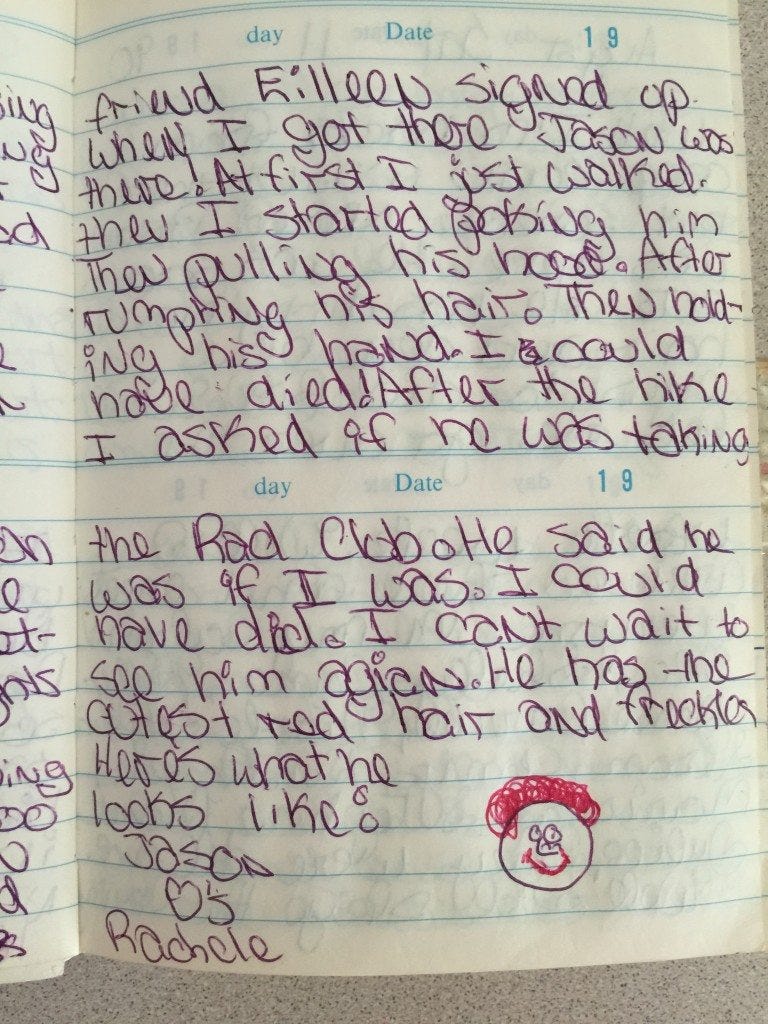 day Date 19
friend Eilleen signed up.
when I got there Jason was
there! At first I just walked.
then I started joking him
Then pulling his hood. After
rumpling his hair. Then hold-
ing his hand. I could
have died! After the hike
I asked if he was taking
day Date 19
the Rad Club. He said he
was if I was. I could
have died. I can't wait to
see him agian. He has the
cutest red hair and freckles
Heres what he
looks like:
Jason
♡'s
Rachele